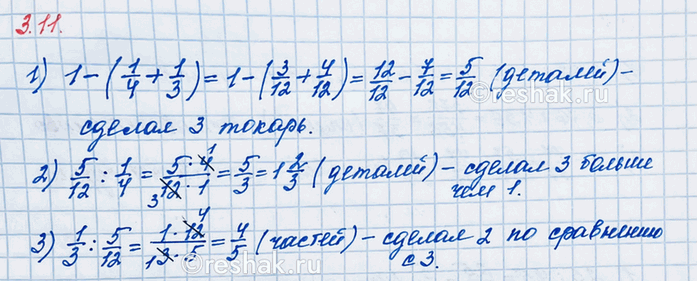 3.11.
1) 1 − (1/4 + 1/3) = 1 − (3/12 + 4/12) = 12/12 − 7/12 = 5/12 (деталей) −
сделал 3 токарь.
2) 5/12 : 1/4 = 5 · 4 1/3 12 · 1 = 5/3 = 1 2/3 (деталей) − сделал 3 больше
чем 1.
3) 1/3 : 5/12 = 1 · 12 4/1 3 · 5 = 4/5 (частей) − сделал 2 по сравнению
с 3.
reshak.ru